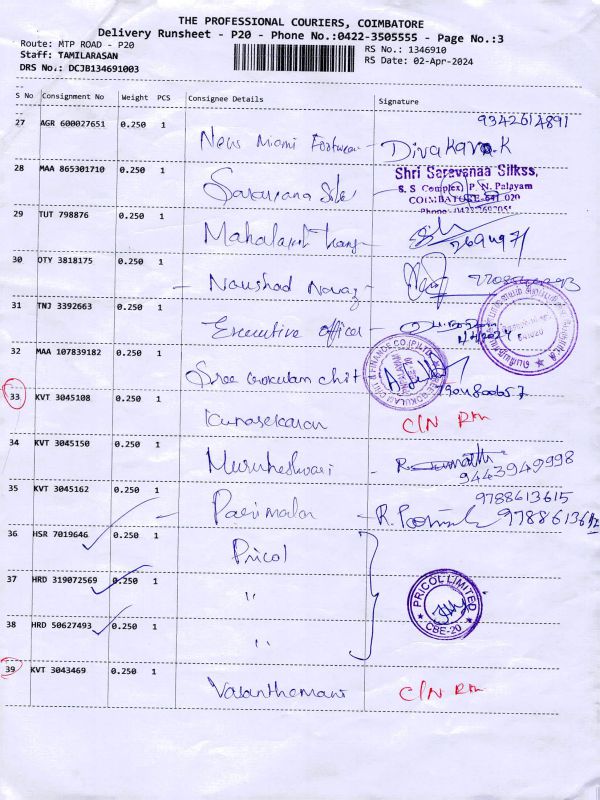 THE PROFESSIONAL COURIERS, COIMBATORE
Delivery Runsheet - P20 - Phone No.:0422-3505555 - Page No.:3
Route: MTP ROAD - P20 RS No.: 1346910
Staff: TAMILARASAN RS Date: 02-Apr-2024
DRS No.: DCJB134691003
S No Consignment No Weight PCS Consignee Details Signature
9342614891
27 AGR 600027651 0.250 1
News Miami Footwear Divakar.K
28 MAA 865301710 0.250 1 Shri Saravanaa Silkss,
S. S Complex, P. N. Palayam
Saravana Silk COIMBATORE-641 020
29 TUT 798876 0.250 1
Mahalaxmi
30 OTY 3818175 0.250 1
Naushad Nawaz
31 TNJ 3392663 0.250 1
Executive Officer
32 MAA 107839182 0.250 1
Sree Gokulam Chit
33 KVT 3045108 0.250 1
Kunasekaran C/N Rtn
34 KVT 3045150 0.250 1
Murukeshwari 9443949998
35 KVT 3045162 0.250 1 9788613615
Parimalan R.
36 HSR 7019646 0.250 1
Pricol
37 HRD 319072569 0.250 1
"
PRICOL LIMITED
CBE-20
38 HRD 50627493 0.250 1
"
39 KVT 3043469 0.250 1
Vasanthamani C/N Rtn